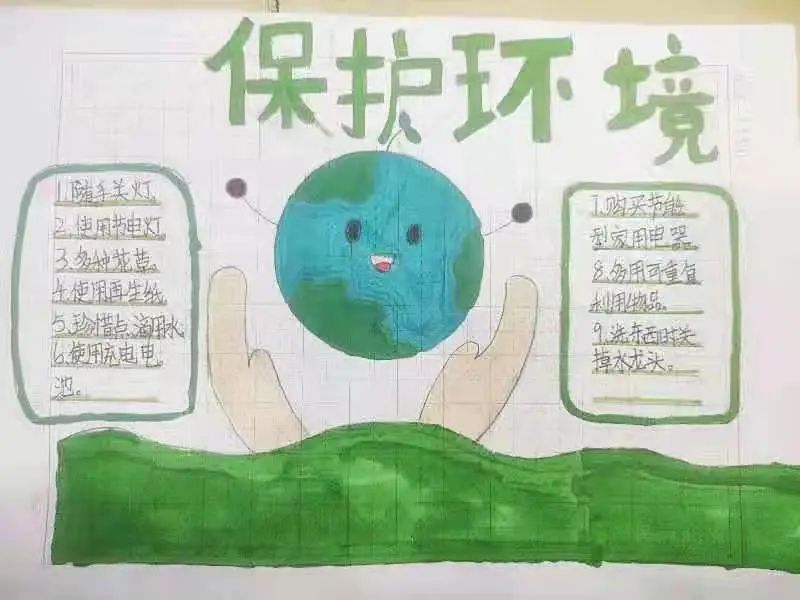 保护环境
1.随手关灯
2.使用节电灯
3.多种花草。
4.使用再生纸
5.珍惜点滴用水
6.使用充电电
池。
7.购买节能
型家用电器。
8.多用可重复
利用物品。
9.洗东西时关
掉水龙头。